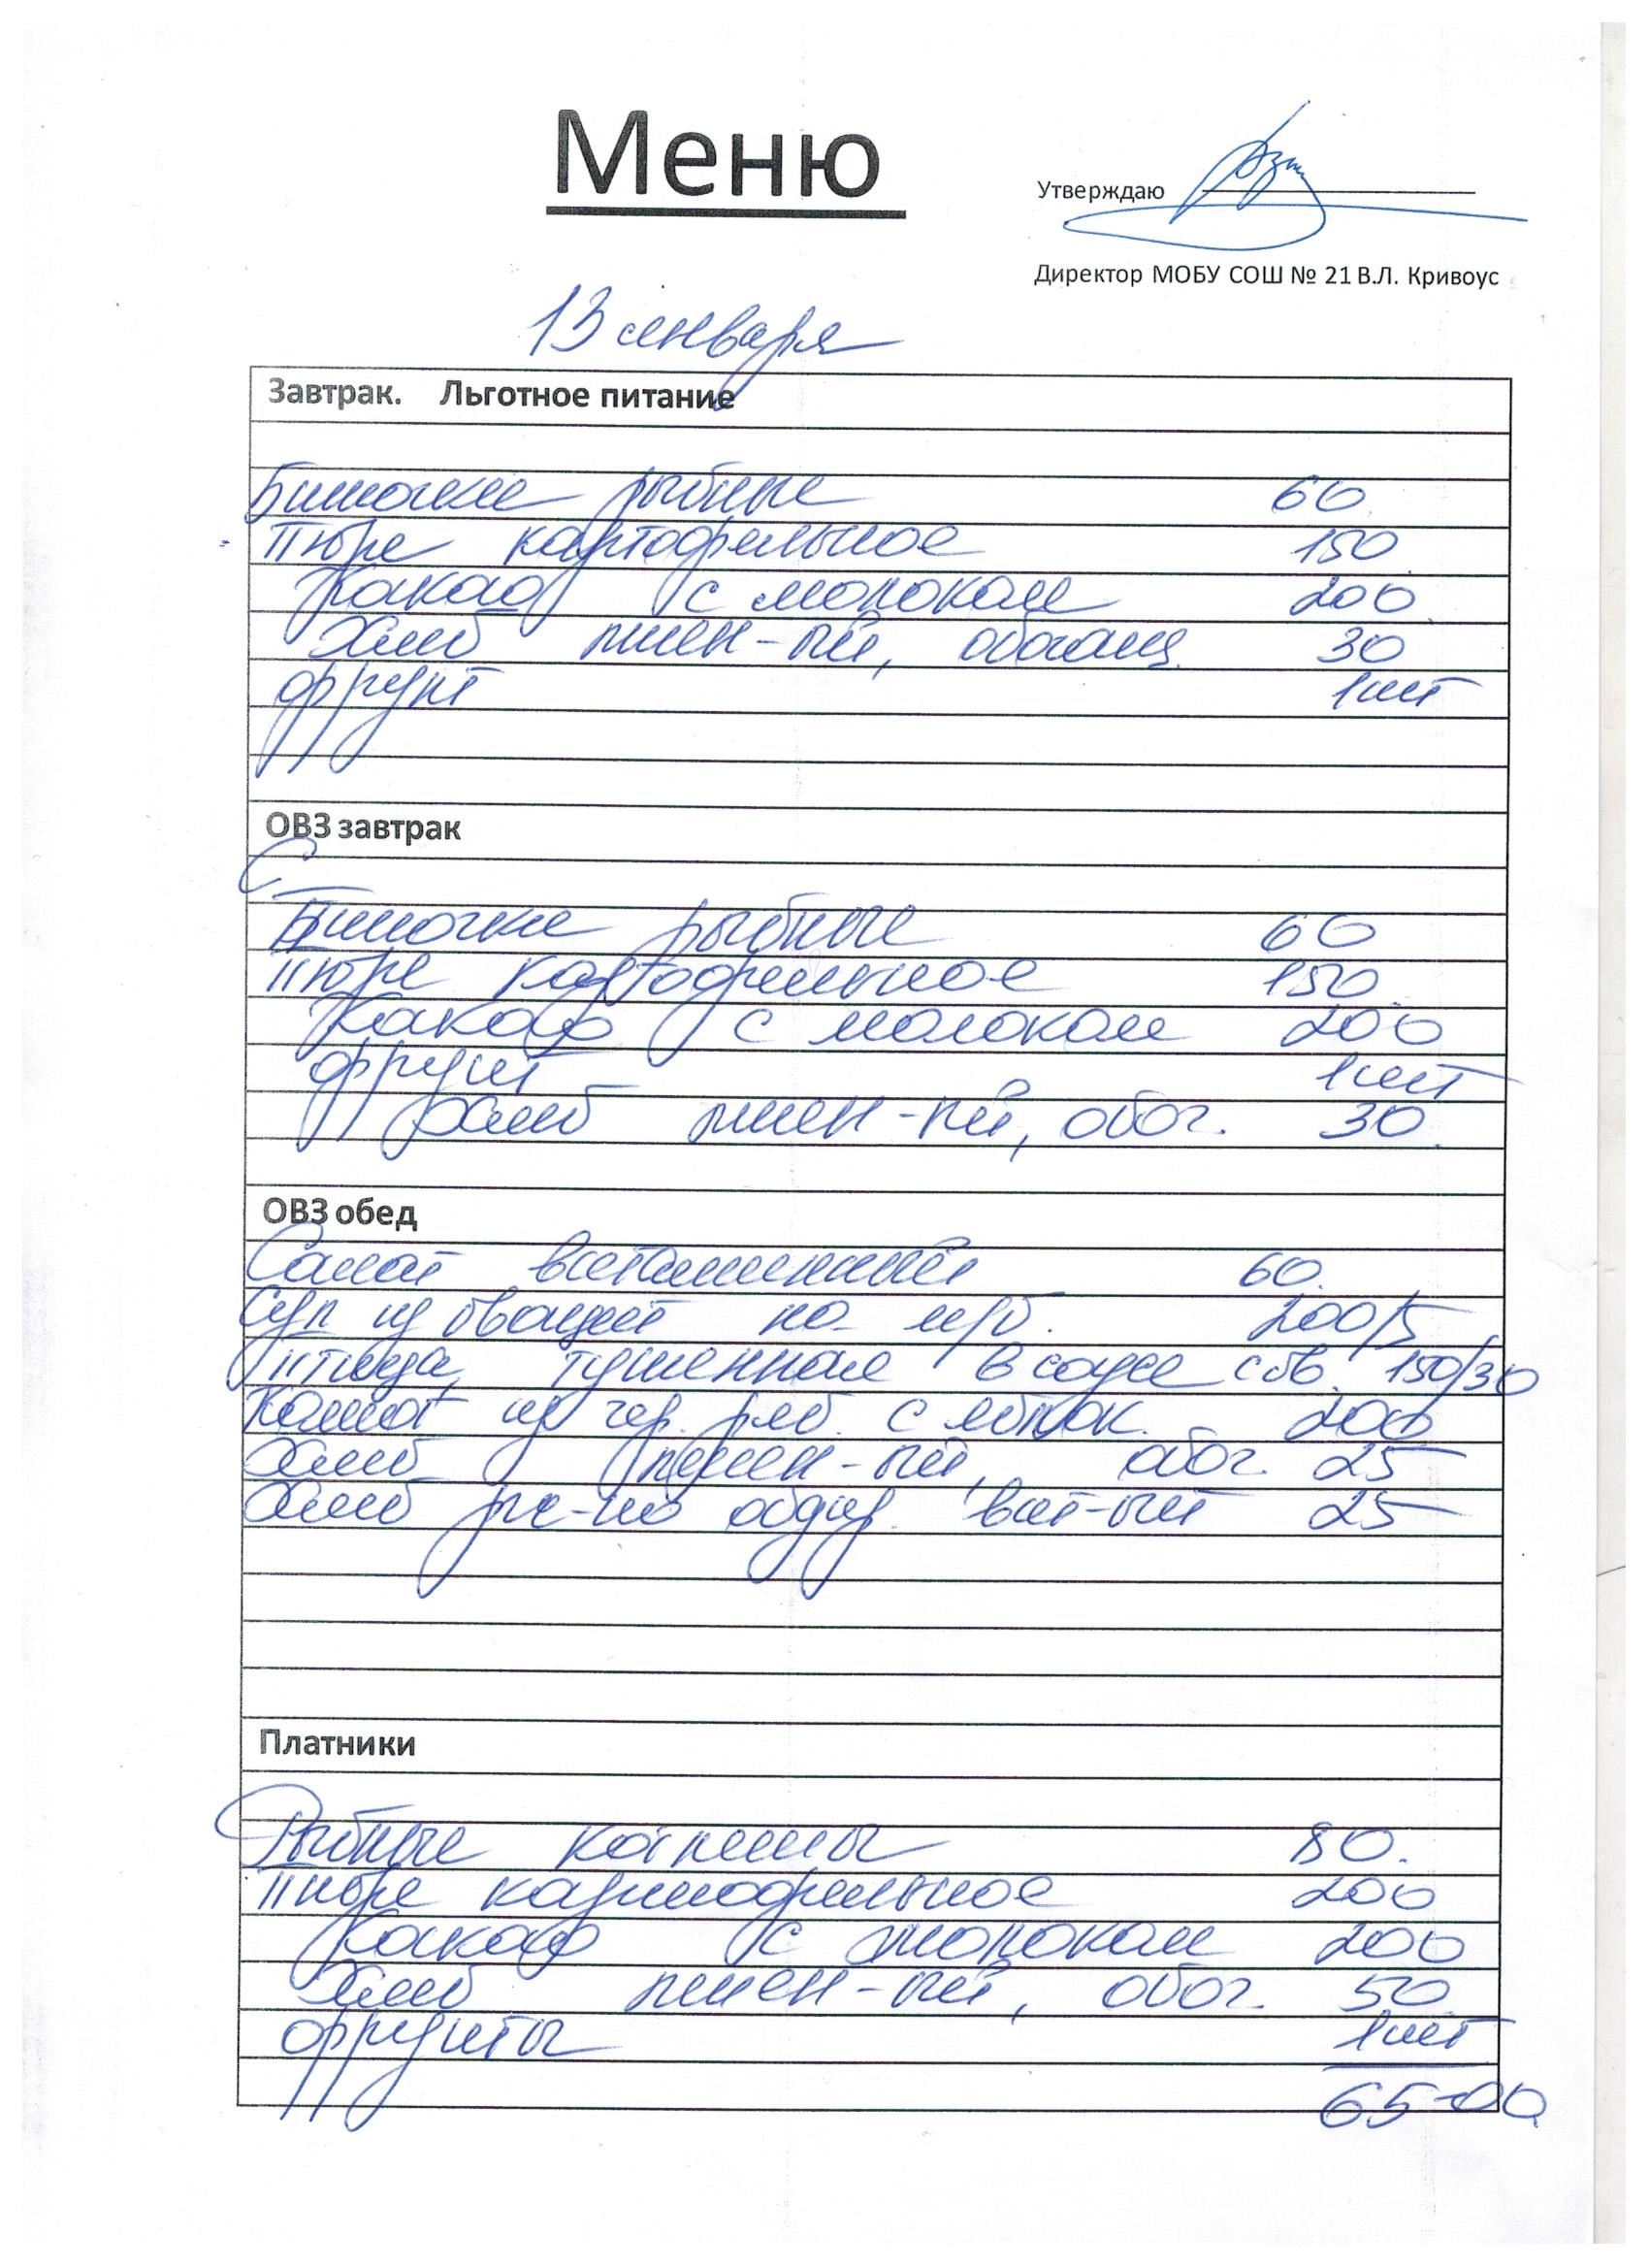 Меню
Утверждаю
Директор МОБУ СОШ № 21 В.Л. Кривоус
13 января
Завтрак. Льготное питание
Биточки рыбные 60
Пюре картофельное 150
Какао с молоком 200
Хлеб пшен-ый, обогащ. 30
фрукт 1шт
ОВЗ завтрак
Биточки рыбные 60
Пюре картофельное 150
Какао с молоком 200
фрукт 1шт
Хлеб пшен-ый, обог. 30.
ОВЗ обед
Салат витаминный 60.
Суп из овощей на м/б. 200/5
Птица, тушенная в соусе с ов. 150/30
Компот из чер. ряб. с яблок. 200
Хлеб пшен-ый, обог. 25
Хлеб рж-но обдир. вит-ый 25
Платники
Рыбные котлеты 80.
Пюре картофельное 200
Какао с молоком 200
Хлеб пшен-ый, обог. 50
фрукты 1шт
65-00